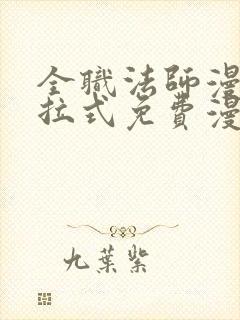 全職法師漫
拉式免費漫
九葉紫